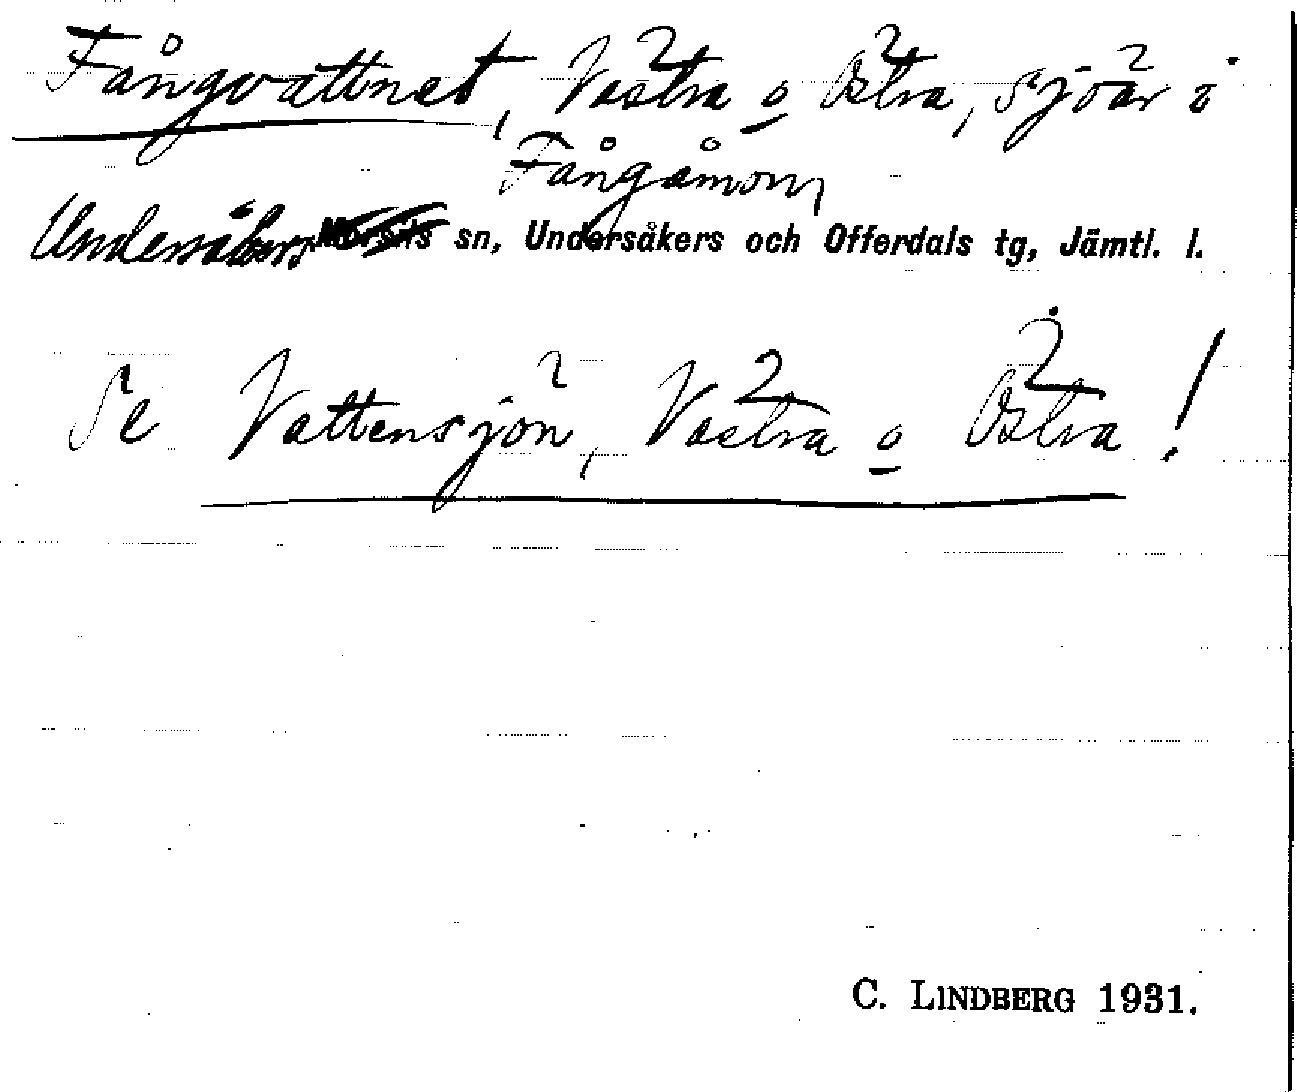 Fångvattnet, Västra o Östra, sjöar i
Fångåmon,
Undersåkers Mörsils sn, Undersåkers och Offerdals tg, Jämtl. l.
Se Vattensjön, Västra o Östra!
C. LINDBERG 1931.